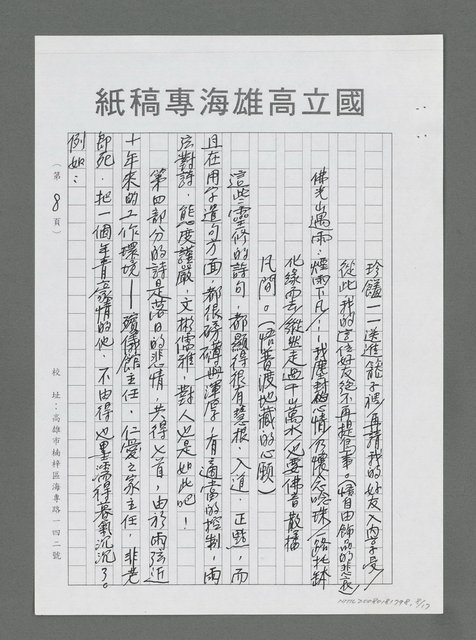 國立高雄海專稿紙
珍饈一一送進籠子裡，再請我的好友入內享受/
從此我的這位好友絕不再提包事。（悟自由飾品的悲哀）
佛光山遇雨：煙雨下凡/一我塵封心情仍懷念唸珠一路托缽
化緣雲雲縱然走過千山萬水/也要佛音散播
凡間。（悟普渡地藏的心願）
這些靈修的詩句，都顯得很有慧根、入道、正點，而
且在用字遣句方面，都很磅礴與渾厚，有適當的控制，雨
弦對詩，態度謹嚴，文彬儒雅，對人也是如此吧！
第四部分的詩是落日的悲情，共得七首，由於雨弦近
十年來的工作環境——殯儀館主任、仁愛之家主任，非老
即死，把一個年青豪情的他，不由得也墨染得暮氣沉沉了。
例如：
（第8頁）
校址：高雄市楠梓區海專路一四二號
NMTL20080181798, 8/17